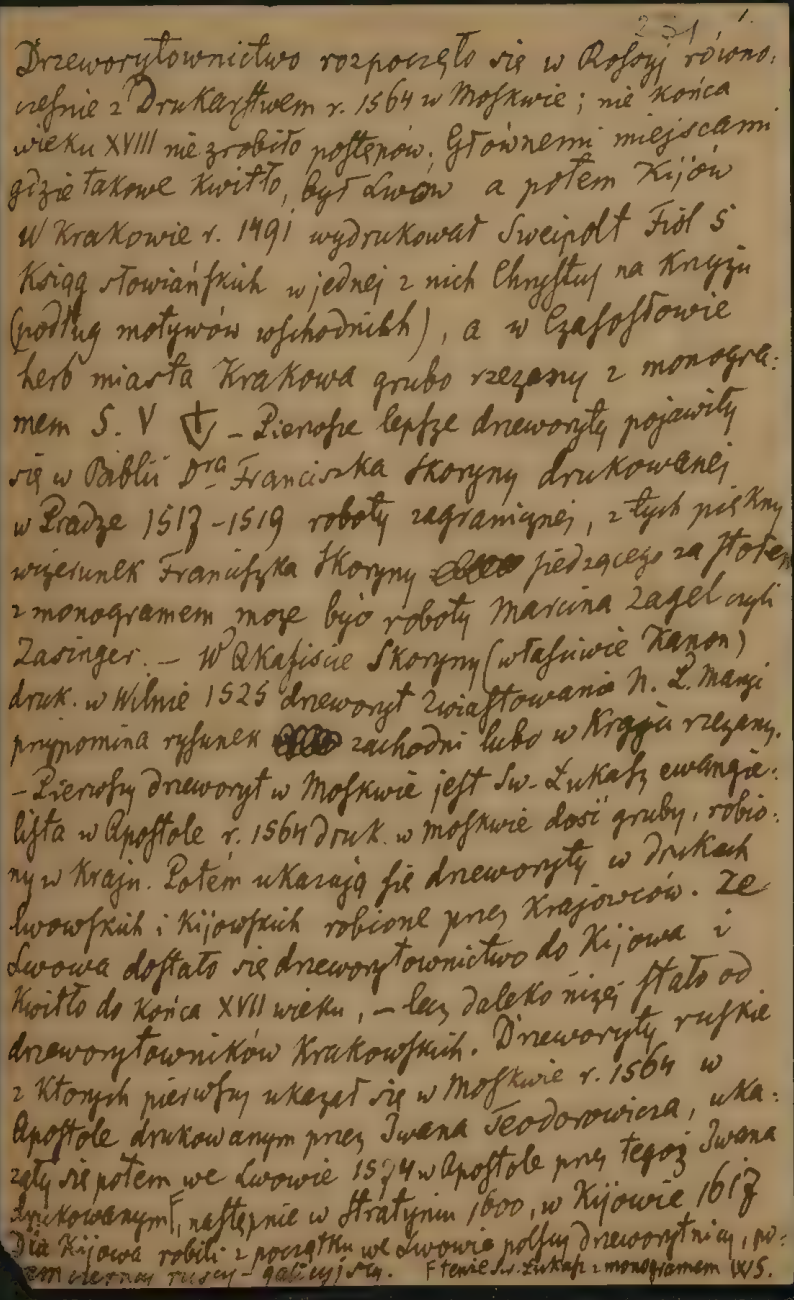 231 1.
Drzeworytownictwo rozpoczęło się w Rossyj równo:
cześnie z Drukarstwem r. 1564 w Moskwie; nie końca
wieku XVIII nie zrobiło postępów. Głównemi miejscami
gdzie takowe kwitło, był Lwów a potem Kijów
W Krakowie r. 1491 wydrukował Sweipolt Fiol 5
Ksiąg słowiańskich w jednej z nich Chrystus na Krzyżu
(podług motywów wschodnich), a w Czasosłowie
herb miasta Krakowa grubo rzezany z monogra:
mem S. V – Pierwsze lepsze drzeworyty pojawiły
się w Biblii Dra Franciszka Skoryny drukowanej
w Pradze 1517-1519 roboty zagranicznej, z tych piękny
wizerunek Franciszka Skoryny siedzącego za stołem
z monogramem może być roboty Marcina Zagel czyli
Zasinger. – W Akafiście Skoryny (właściwie Kanon)
druk. w Wilnie 1525 drzeworyt Zwiastowania N. P. Maryi
przypomina rysunek zachodni lubo w Kraju rzezany.
– Pierwszy drzeworyt w Moskwie jest Sw. Łukasz ewangie:
lista w Apostole r. 1564 druk. w Moskwie dosć gruby, robio:
ny w Kraju. Potem ukazują się drzeworyty w drukach
lwowskich i Kijowskich robione przez Krajowców. Ze
Lwowa dostało się drzeworytownictwo do Kijowa i
Kwitło do końca XVII wieku, – lecz daleko niżej stało od
drzeworytowników Krakowskich. Drzeworyty ruskie
z których pierwszy ukazał się w Moskwie r. 1564 w
Apostole drukowanym przez Iwana Teodorowicza, uka:
zały się potem we Lwowie 1574 w Apostole przez tegoż Iwana
drukowanym F, następnie w Stratyniu 1600, w Kijowie 1617
Dla Kijowa robili z początku we Lwowie polscy drzeworytnicy, po:
tem ruscy – galicyjscy. F tenże Sw. Łukasz z monogramem WS.